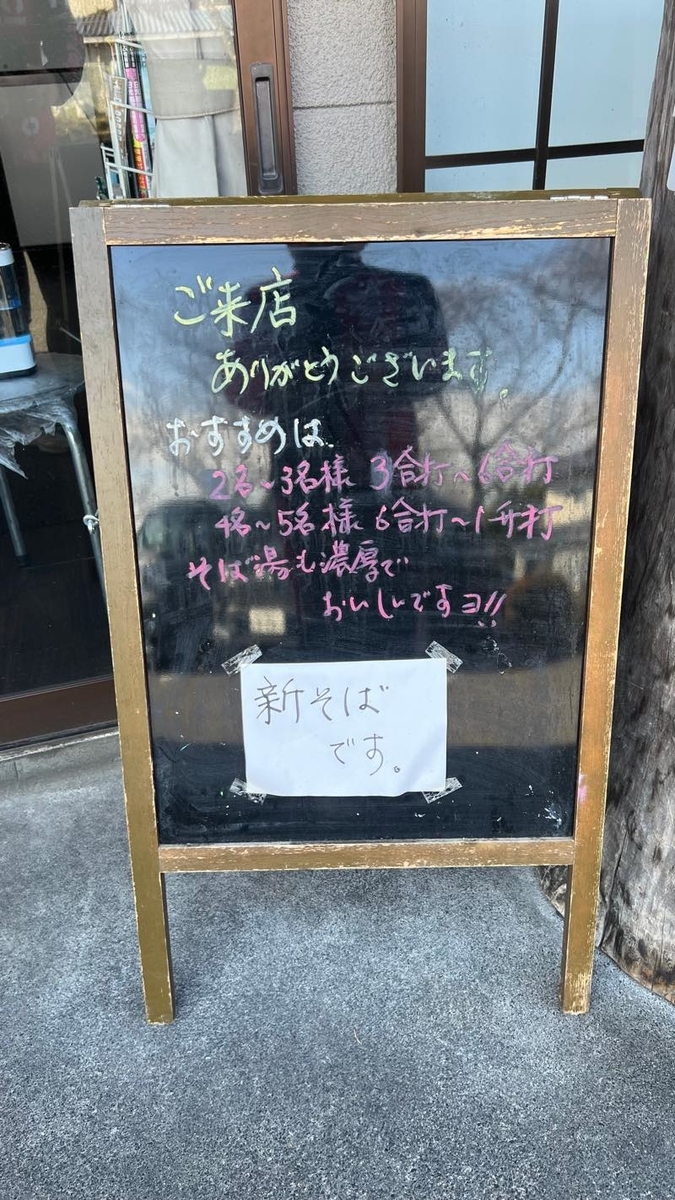 ご来店
ありがとうございます。
おすすめは、
2名〜3名様 3合打〜6合打
4名〜5名様 6合打〜1升打
そば湯も濃厚で
おいしいですヨ!!
新そば
です。